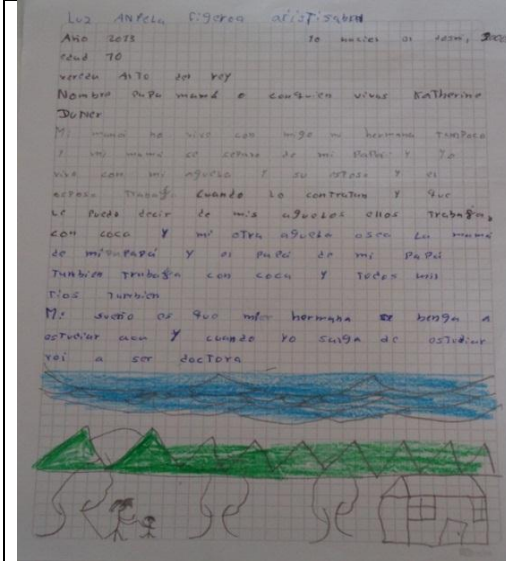 Luz Angela Figeroa aristisabal
Año 2013 10 nucier os desm, 2002
edad 10
vereda Alto del rey
Nombre papa mamá o conquien vives Katherine
Duner
Mi mamá no vive con migo ni hermana Tampoco
Y mi mamá se separo de mi papá Y Yo
vivo con mi aguela Y su esposo Y el
esposo Trabaga cuando lo contratan Y que
Le puedo decir de mis aguelos ellos Trabagan
con coca Y mi otra aguela osea La mamá
de mi papá Y el papá de mi papá
Tanbien Trabaga con coca Y Todos mis
Tios Tanbien
Mi sueño es que mi hermana benga a
esTudiar aca Y cuando yo salga de esTudiar
voi a ser docTora